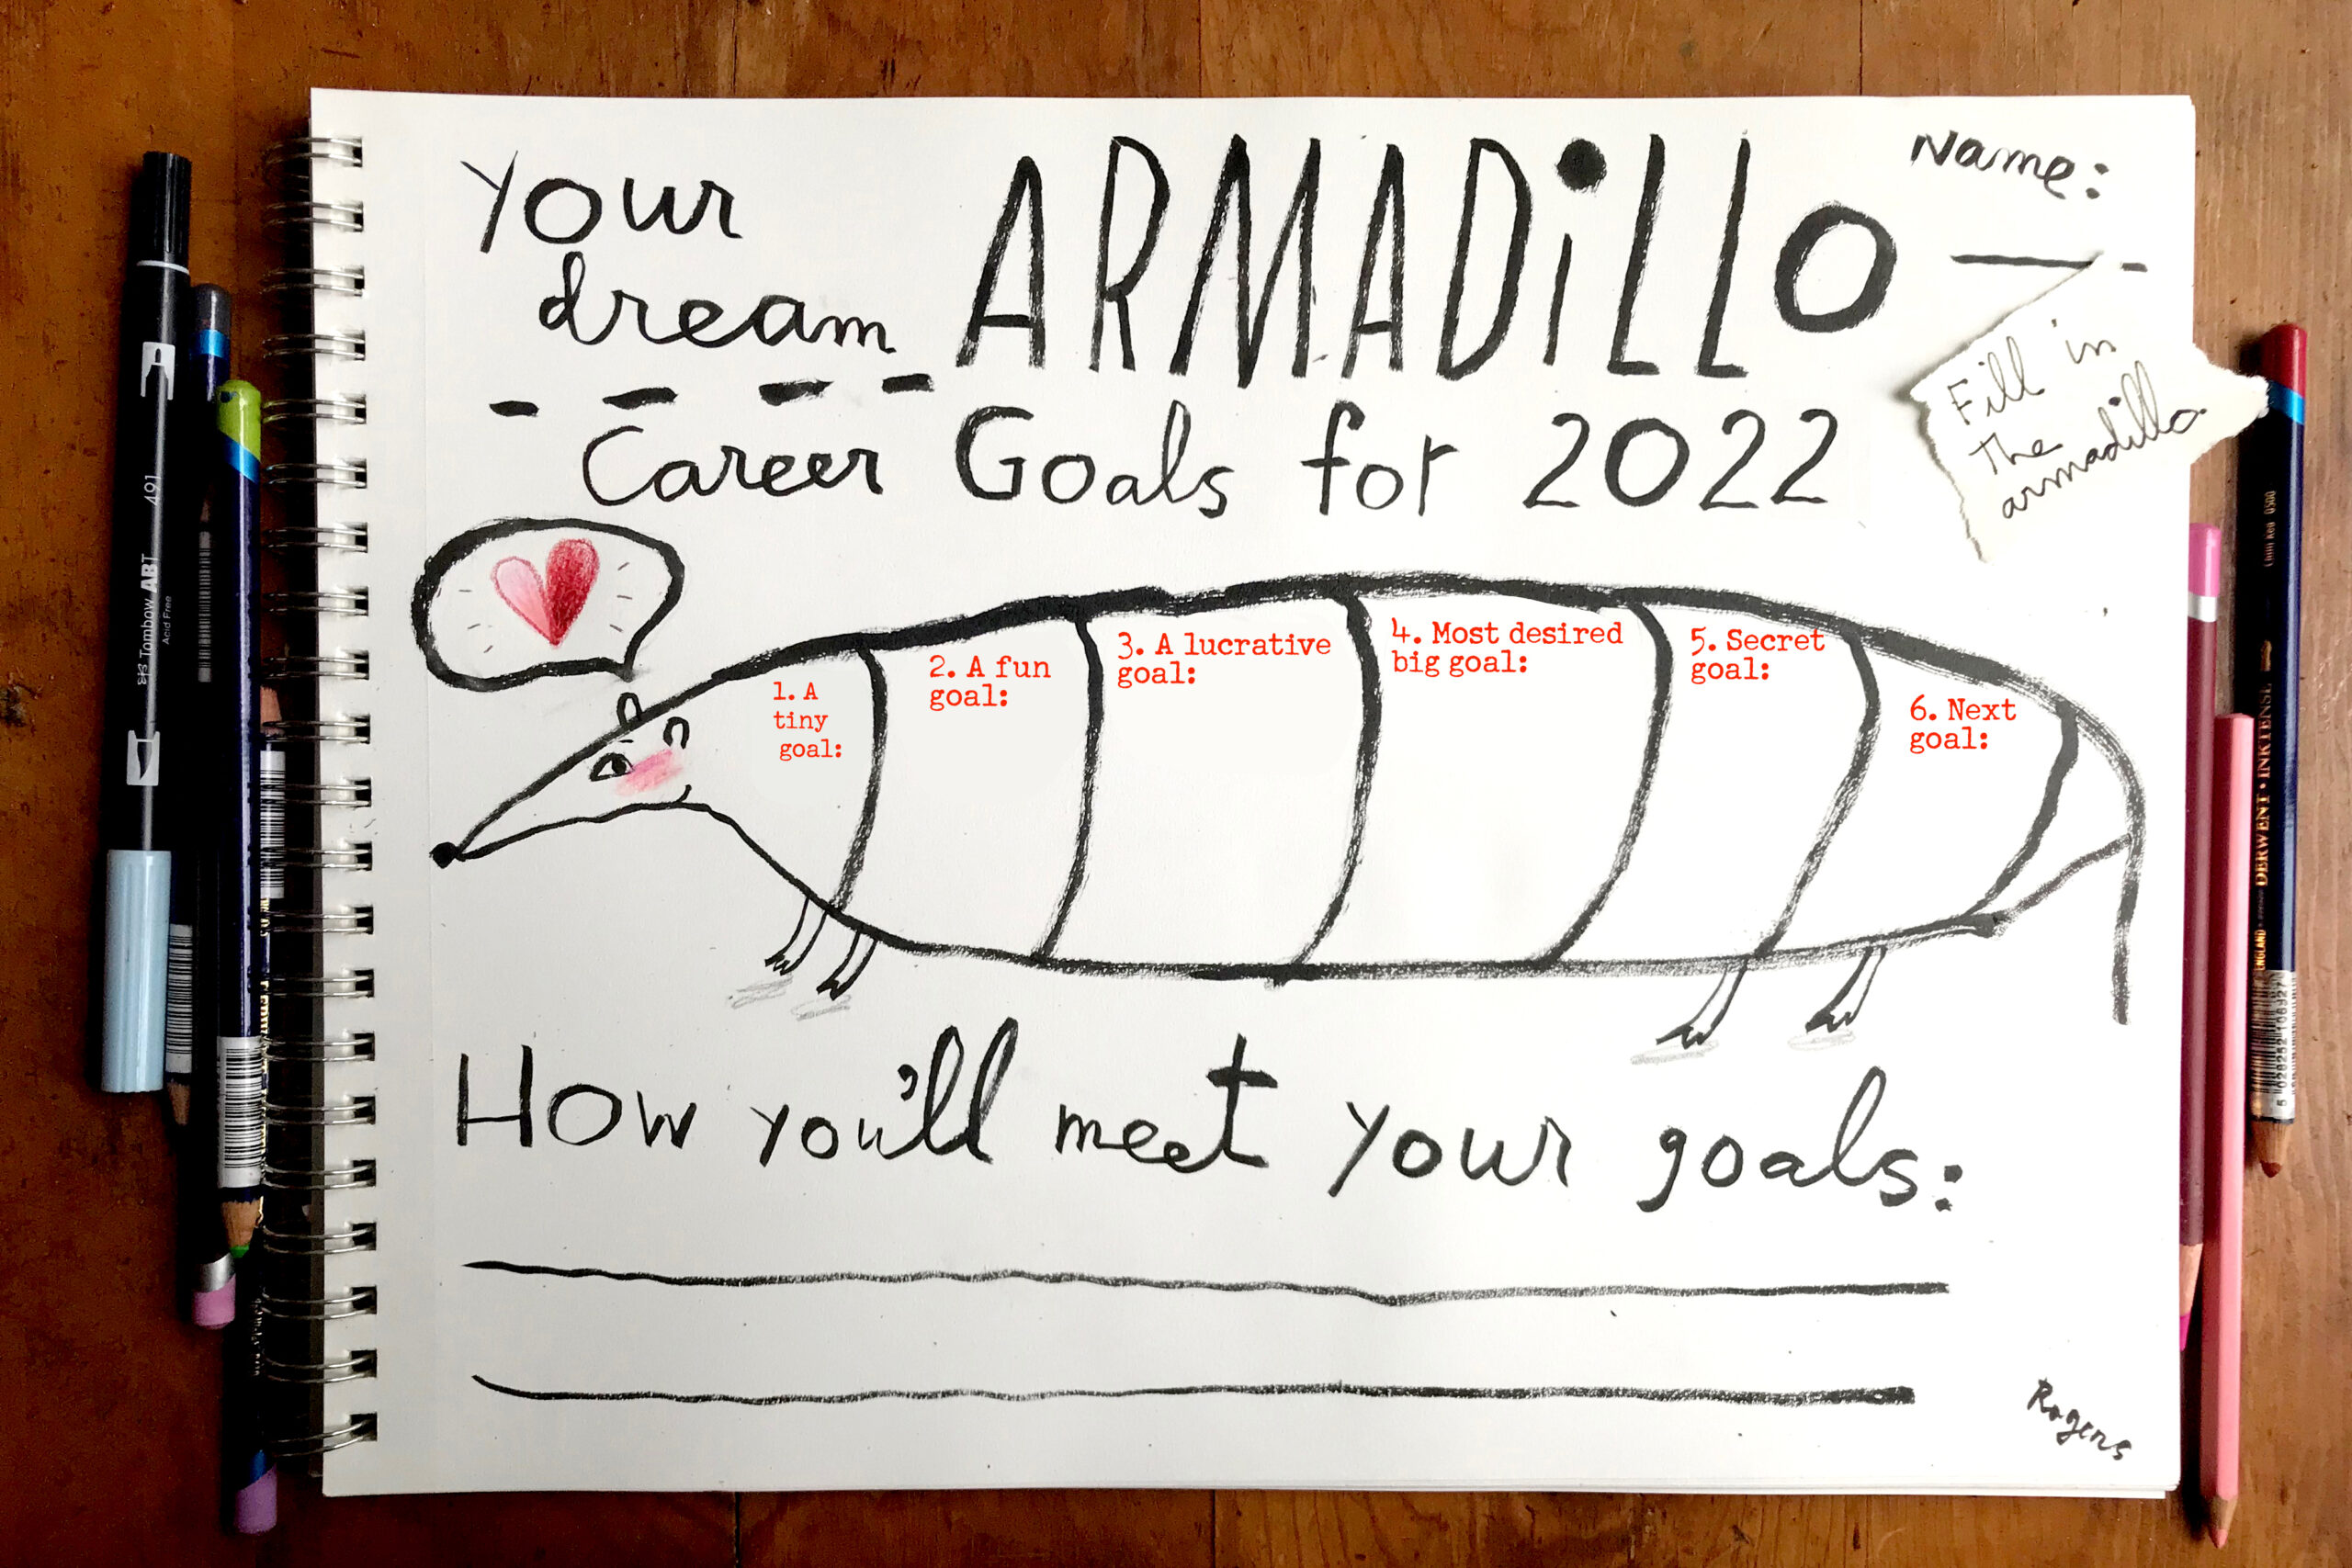 Your
dream ARMADiLLO
Career Goals for 2022
Name:
Fill in
the
armadillo
1. A
tiny
goal:
2. A fun
goal:
3. A lucrative
goal:
4. Most desired
big goal:
5. Secret
goal:
6. Next
goal:
How you'll meet your goals:
Rogers
491
Tombow ABT
Acid Free
DERWENT • INKTENSE
ENGLAND